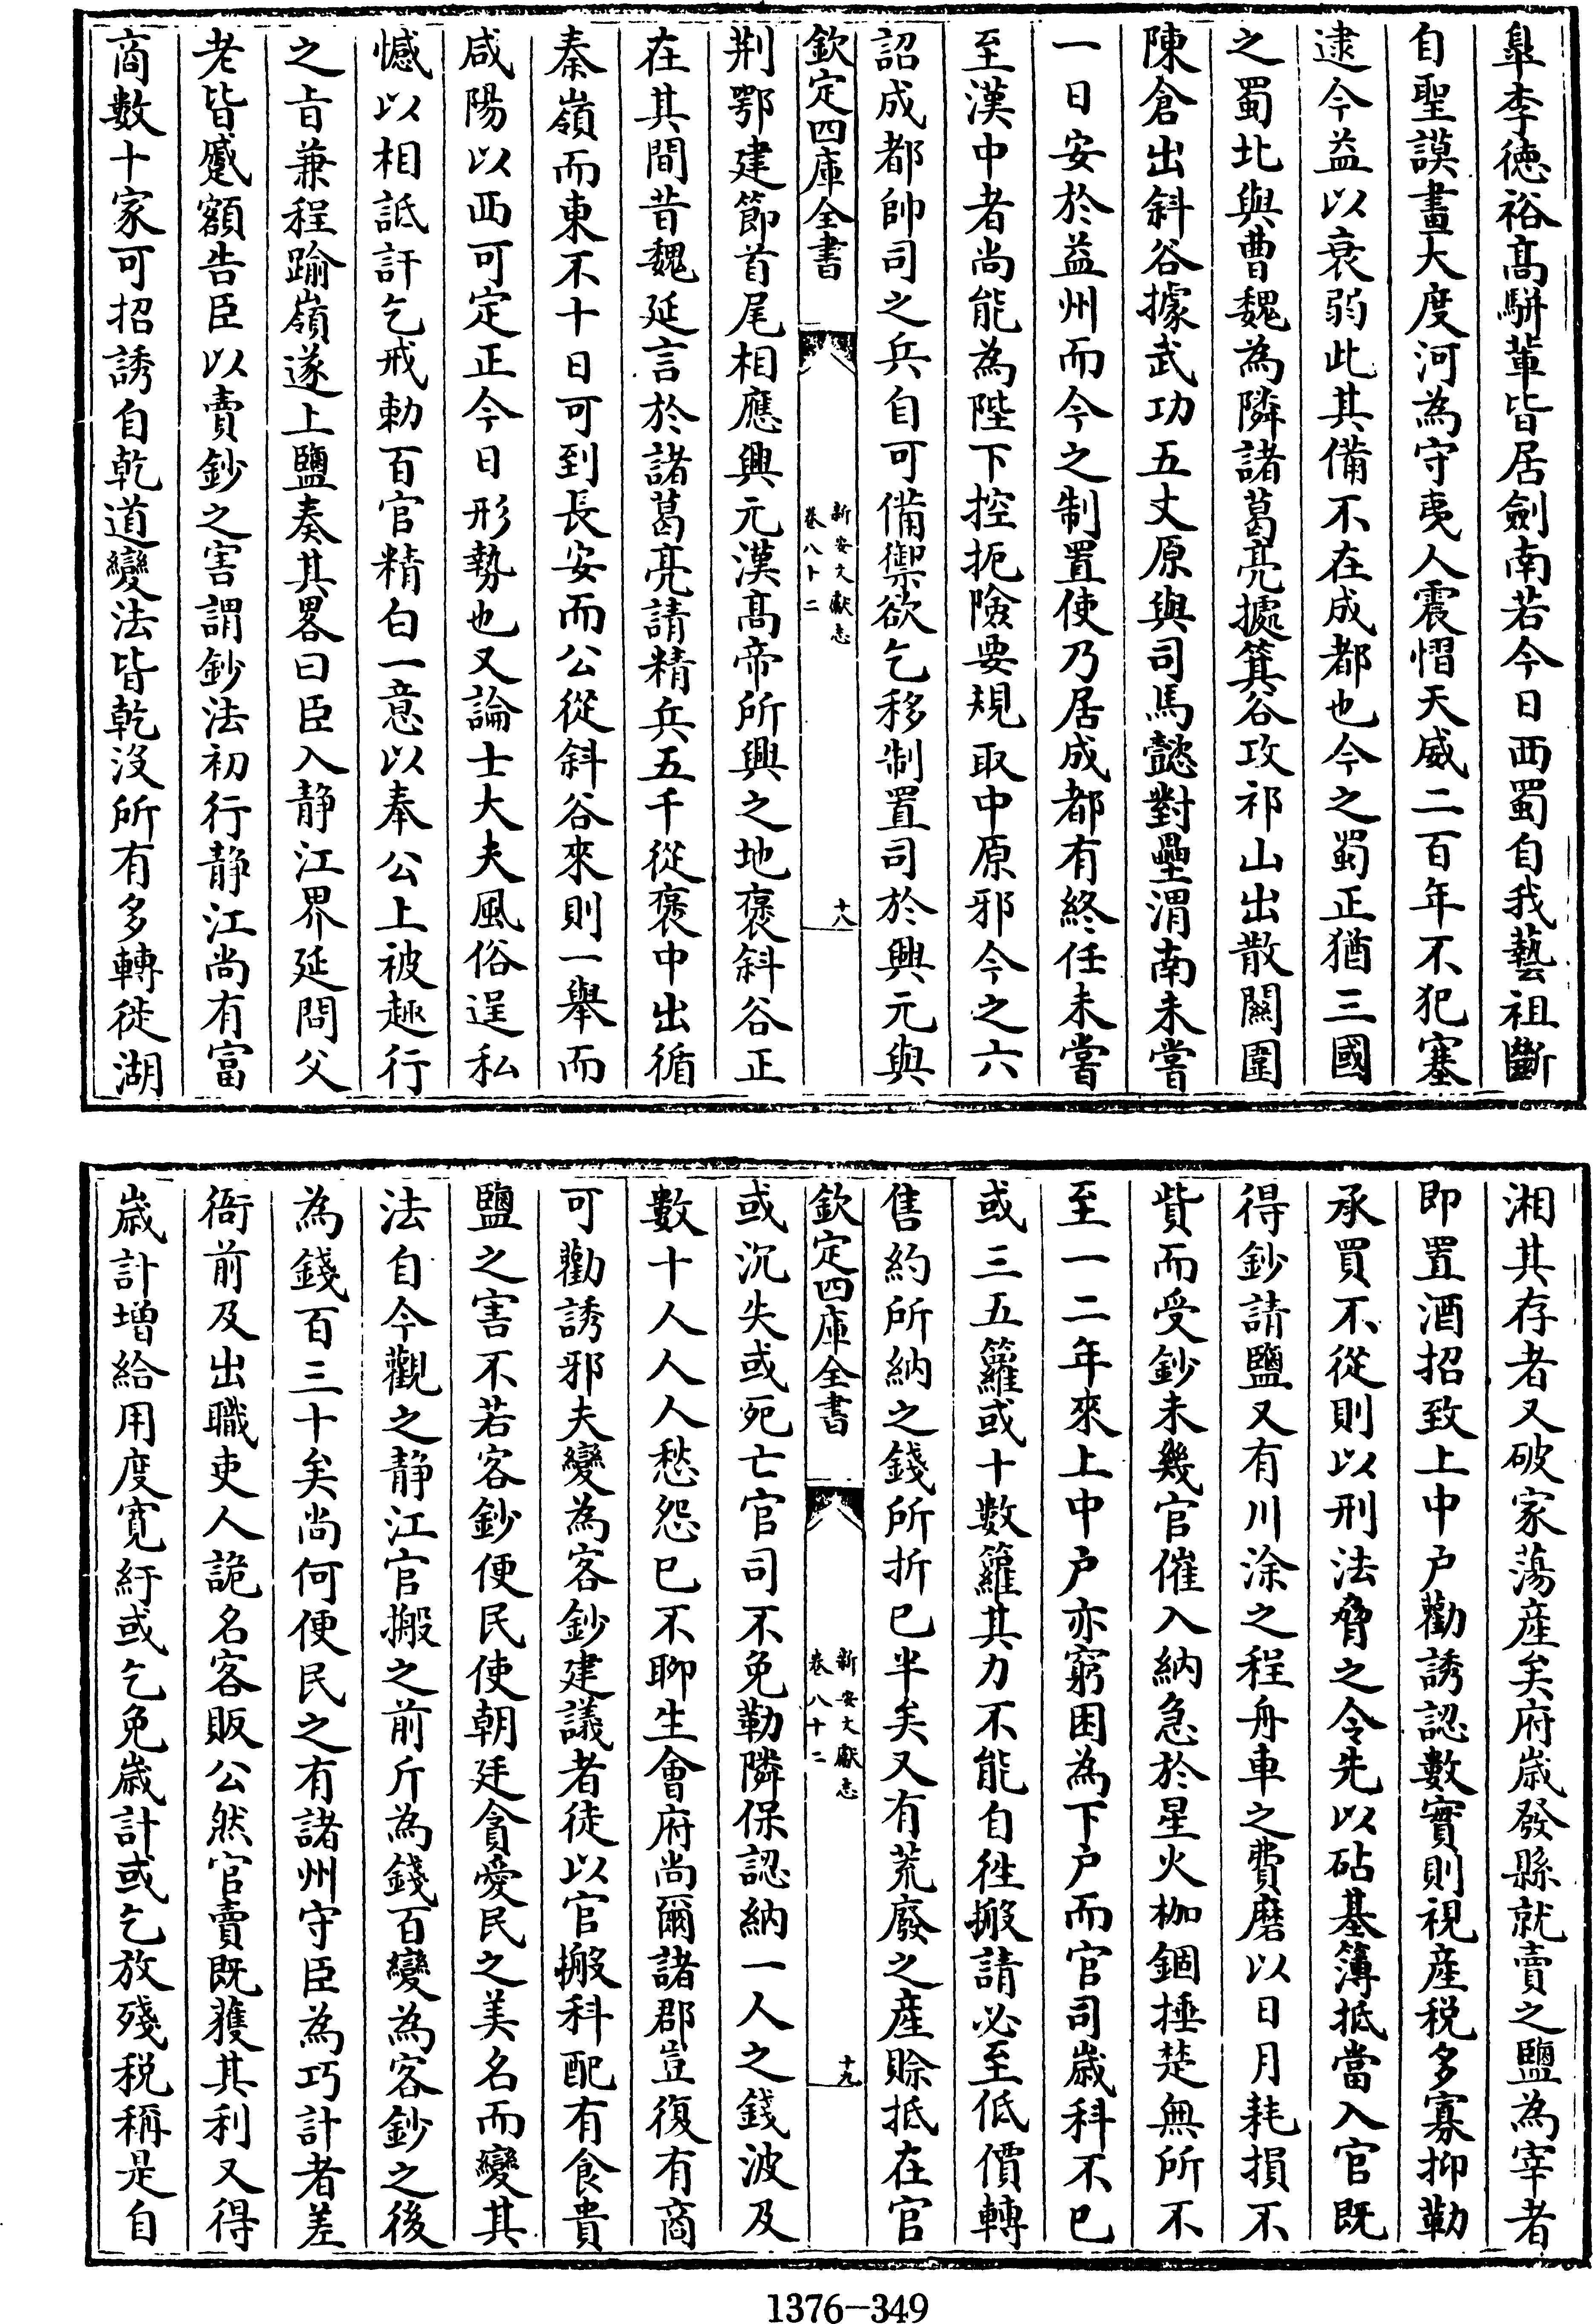 臯李徳裕髙駢輩皆居劍南若今日西蜀自我藝祖斷
自聖謨畫大度河為守夷人震慴天威二百年不犯塞
逮今益以衰弱此其備不在成都也今之蜀正猶三國
之蜀北與曹魏為隣諸葛亮據箕谷攻祁山出散關圍
陳倉出斜谷據武功五丈原與司馬懿對壘渭南未嘗
一日安於益州而今之制置使乃居成都有終任未嘗
至漢中者尚能為陛下控扼險要規取中原邪今之六
詔成都帥司之兵自可備禦欲乞移制置司於興元與
欽定四庫全書
新安文獻志
卷八十二
十八
荆鄂建節首尾相應興元漢髙帝所興之地褒斜谷正
在其間昔魏延言於諸葛亮請精兵五千從褒中出循
秦嶺而東不十日可到長安而公從斜谷來則一舉而
咸陽以西可定正今日形勢也又論士大夫風俗逞私
憾以相詆訐乞戒勅百官精白一意以奉公上被趣行
之㫖兼程踰嶺遂上鹽奏其畧曰臣入静江界延問父
老皆蹙額告臣以賣鈔之害謂鈔法初行静江尚有富
商數十家可招誘自乾道變法皆乾没所有多轉徙湖
湘其存者又破家蕩産矣府歲發縣就賣之鹽為宰者
即置酒招致上中户勸誘認數實則視産税多寡抑勒
承買不從則以刑法脅之令先以砧基簿抵當入官既
得鈔請鹽又有川涂之程舟車之費磨以日月耗損不
貲而受鈔未幾官催入納急於星火枷錮捶楚無所不
至一二年來上中户亦窮困為下户而官司歲科不已
或三五籮或十數籮其力不能自徃搬請必至低價轉
售約所納之錢所折已半矣又有荒廢之産賒抵在官
欽定四庫全書
新安文獻志
卷八十二
十九
或沉失或死亡官司不免勒隣保認納一人之錢波及
數十人人人愁怨已不聊生會府尚爾諸郡豈復有商
可勸誘邪夫變為客鈔建議者徒以官搬科配有食貴
鹽之害不若客鈔便民使朝廷貪愛民之美名而變其
法自今觀之静江官搬之前斤為錢百變為客鈔之後
為錢百三十矣尚何便民之有諸州守臣為巧計者差
衙前及出職吏人詭名客販公然官賣既獲其利又得
歲計增給用度寛紓或乞免歲計或乞放殘税稱是自
1376-349